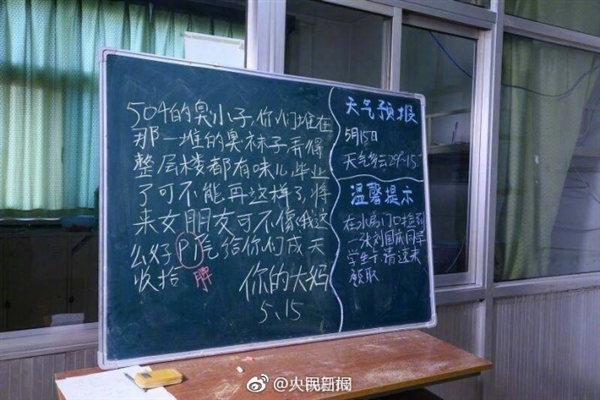 504的臭小子,你们堆在
那一堆的臭袜子弄得
整层楼都有味儿,毕业
了可不能再这样了,将
来女朋友可不像我这
么好PI气给你们成天
收拾 脾
你的大妈
5、15
天气预报
5月15日
天气多云29°~15°
温馨提示
在水房门口捡到
一张刘国庆同学
学生卡请过来
领取
@人民日报